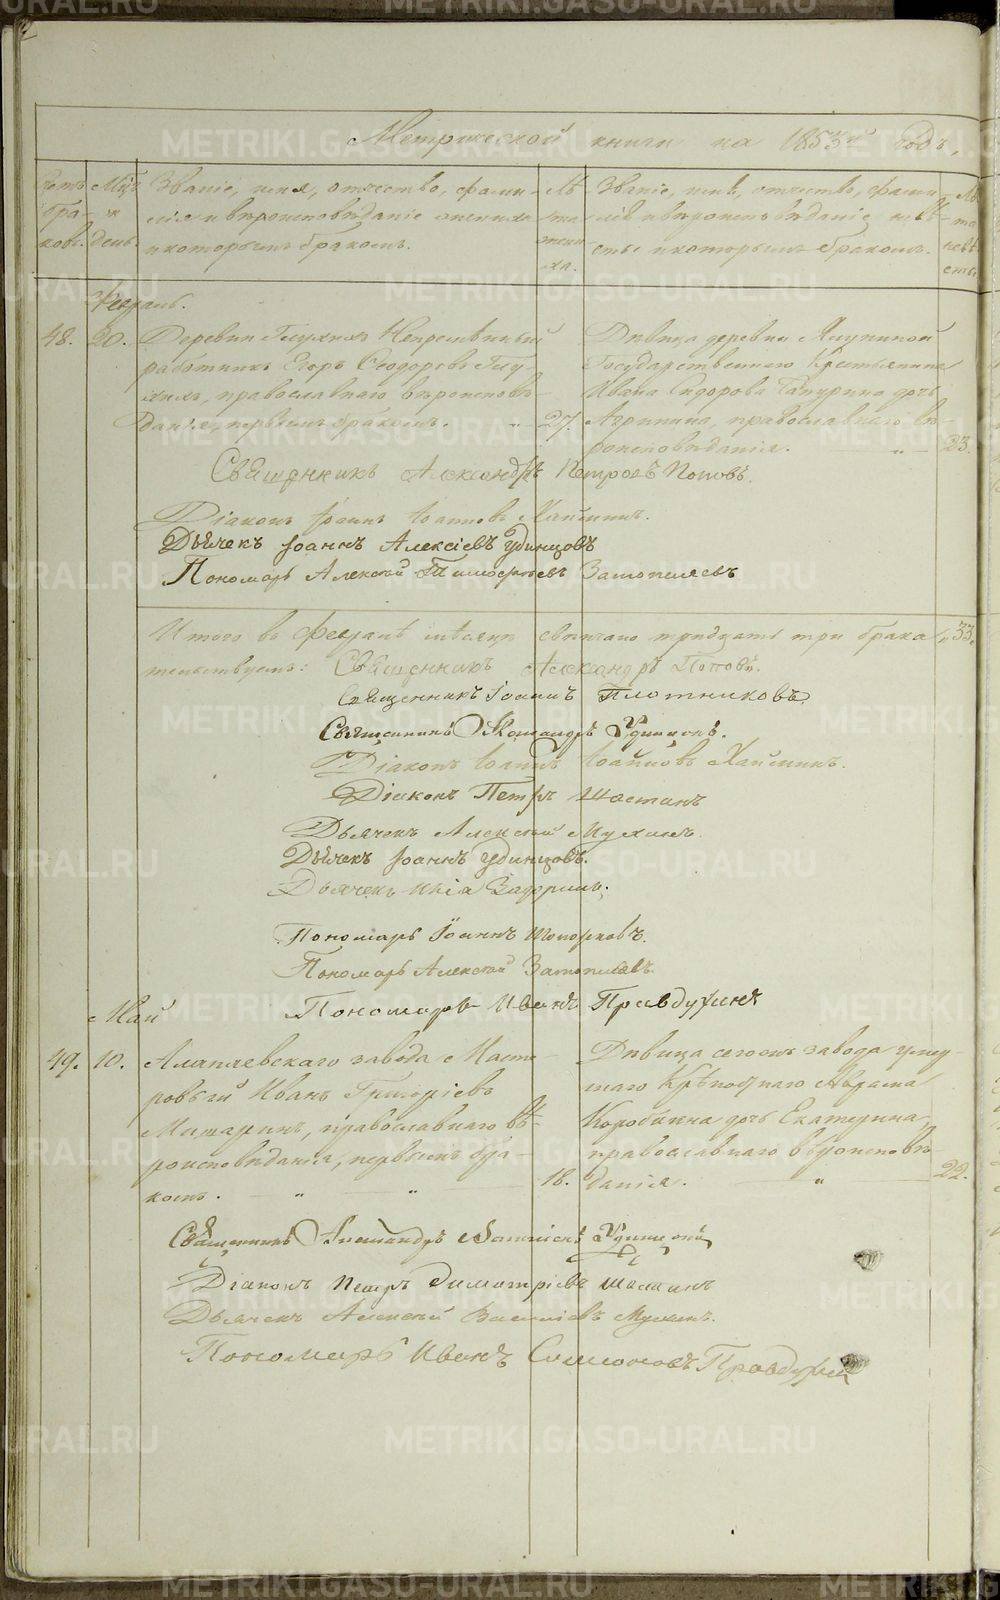 Метрической книги на 1853й годъ.
Счетъ браковъ.
Мѣц. и день.
Званіе, имя, отчество, фамилія и вѣроисповѣданіе жениха и которымъ бракомъ.
Лѣта жениха.
Званіе, имя, отчество, фамилія и вѣроисповѣданіе невѣсты и которымъ бракомъ.
Лѣта невѣсты
Февраль.
48. 20.
Деревни Глухихъ Непремѣнный
работникъ Егоръ Ѳеодоровъ Глу-
хихъ, православнаго вѣроисповѣ-
данія, первымъ бракомъ. 27.
Дѣвица деревни Ялуниной
Государственнаго Крестьянина
Ивана Сидорова дочь
Агрипина, православнаго вѣ-
роисповѣданія. 23.
Священникъ Александръ Петровъ Поповъ.
Діаконъ Іоаннъ Іоанновъ Хайминъ.
Дьячекъ Іоаннъ Алексіевъ Удинцовъ
Пономарь Алексѣй Тимофѣевъ Затопляевъ
Итого въ Февралѣ мѣсяцѣ свѣнчано тридцать три брака 33.
тельствуемъ: Священникъ Александръ Поповъ.
Священникъ Іоаннъ Плотниковъ
Священникъ Александръ Удинцовъ.
Діаконъ Іоаннъ Іоанновъ Хайминъ.
Діаконъ Петръ Шастинъ
Дьячекъ Алексѣй Мухинъ.
Дьячекъ Іоаннъ Удинцовъ.
Дьячекъ
Пономарь Іоаннъ Топорковъ.
Пономарь Алексѣй Затопляевъ.
Пономарь Иванъ Правдухинъ
Май
49. 10.
Алапаевскаго завода Масте-
ровый Иванъ Григоріевъ
православнаго вѣ-
роисповѣданія, первымъ бра-
комъ. 18.
Дѣвица сегожъ завода умер-
шаго Крѣпоснаго Аврама
Коробкина дочь Екатерина,
православнаго вѣроисповѣ-
данія. 22.
Священникъ Александръ Удинцовъ
Діаконъ Петръ Димитріевъ Шастинъ
Дьячекъ Алексѣй Василіевъ Мухинъ.
Пономарь Иванъ Симеоновъ Правдухин
METRIKI.GASO-URAL.RU